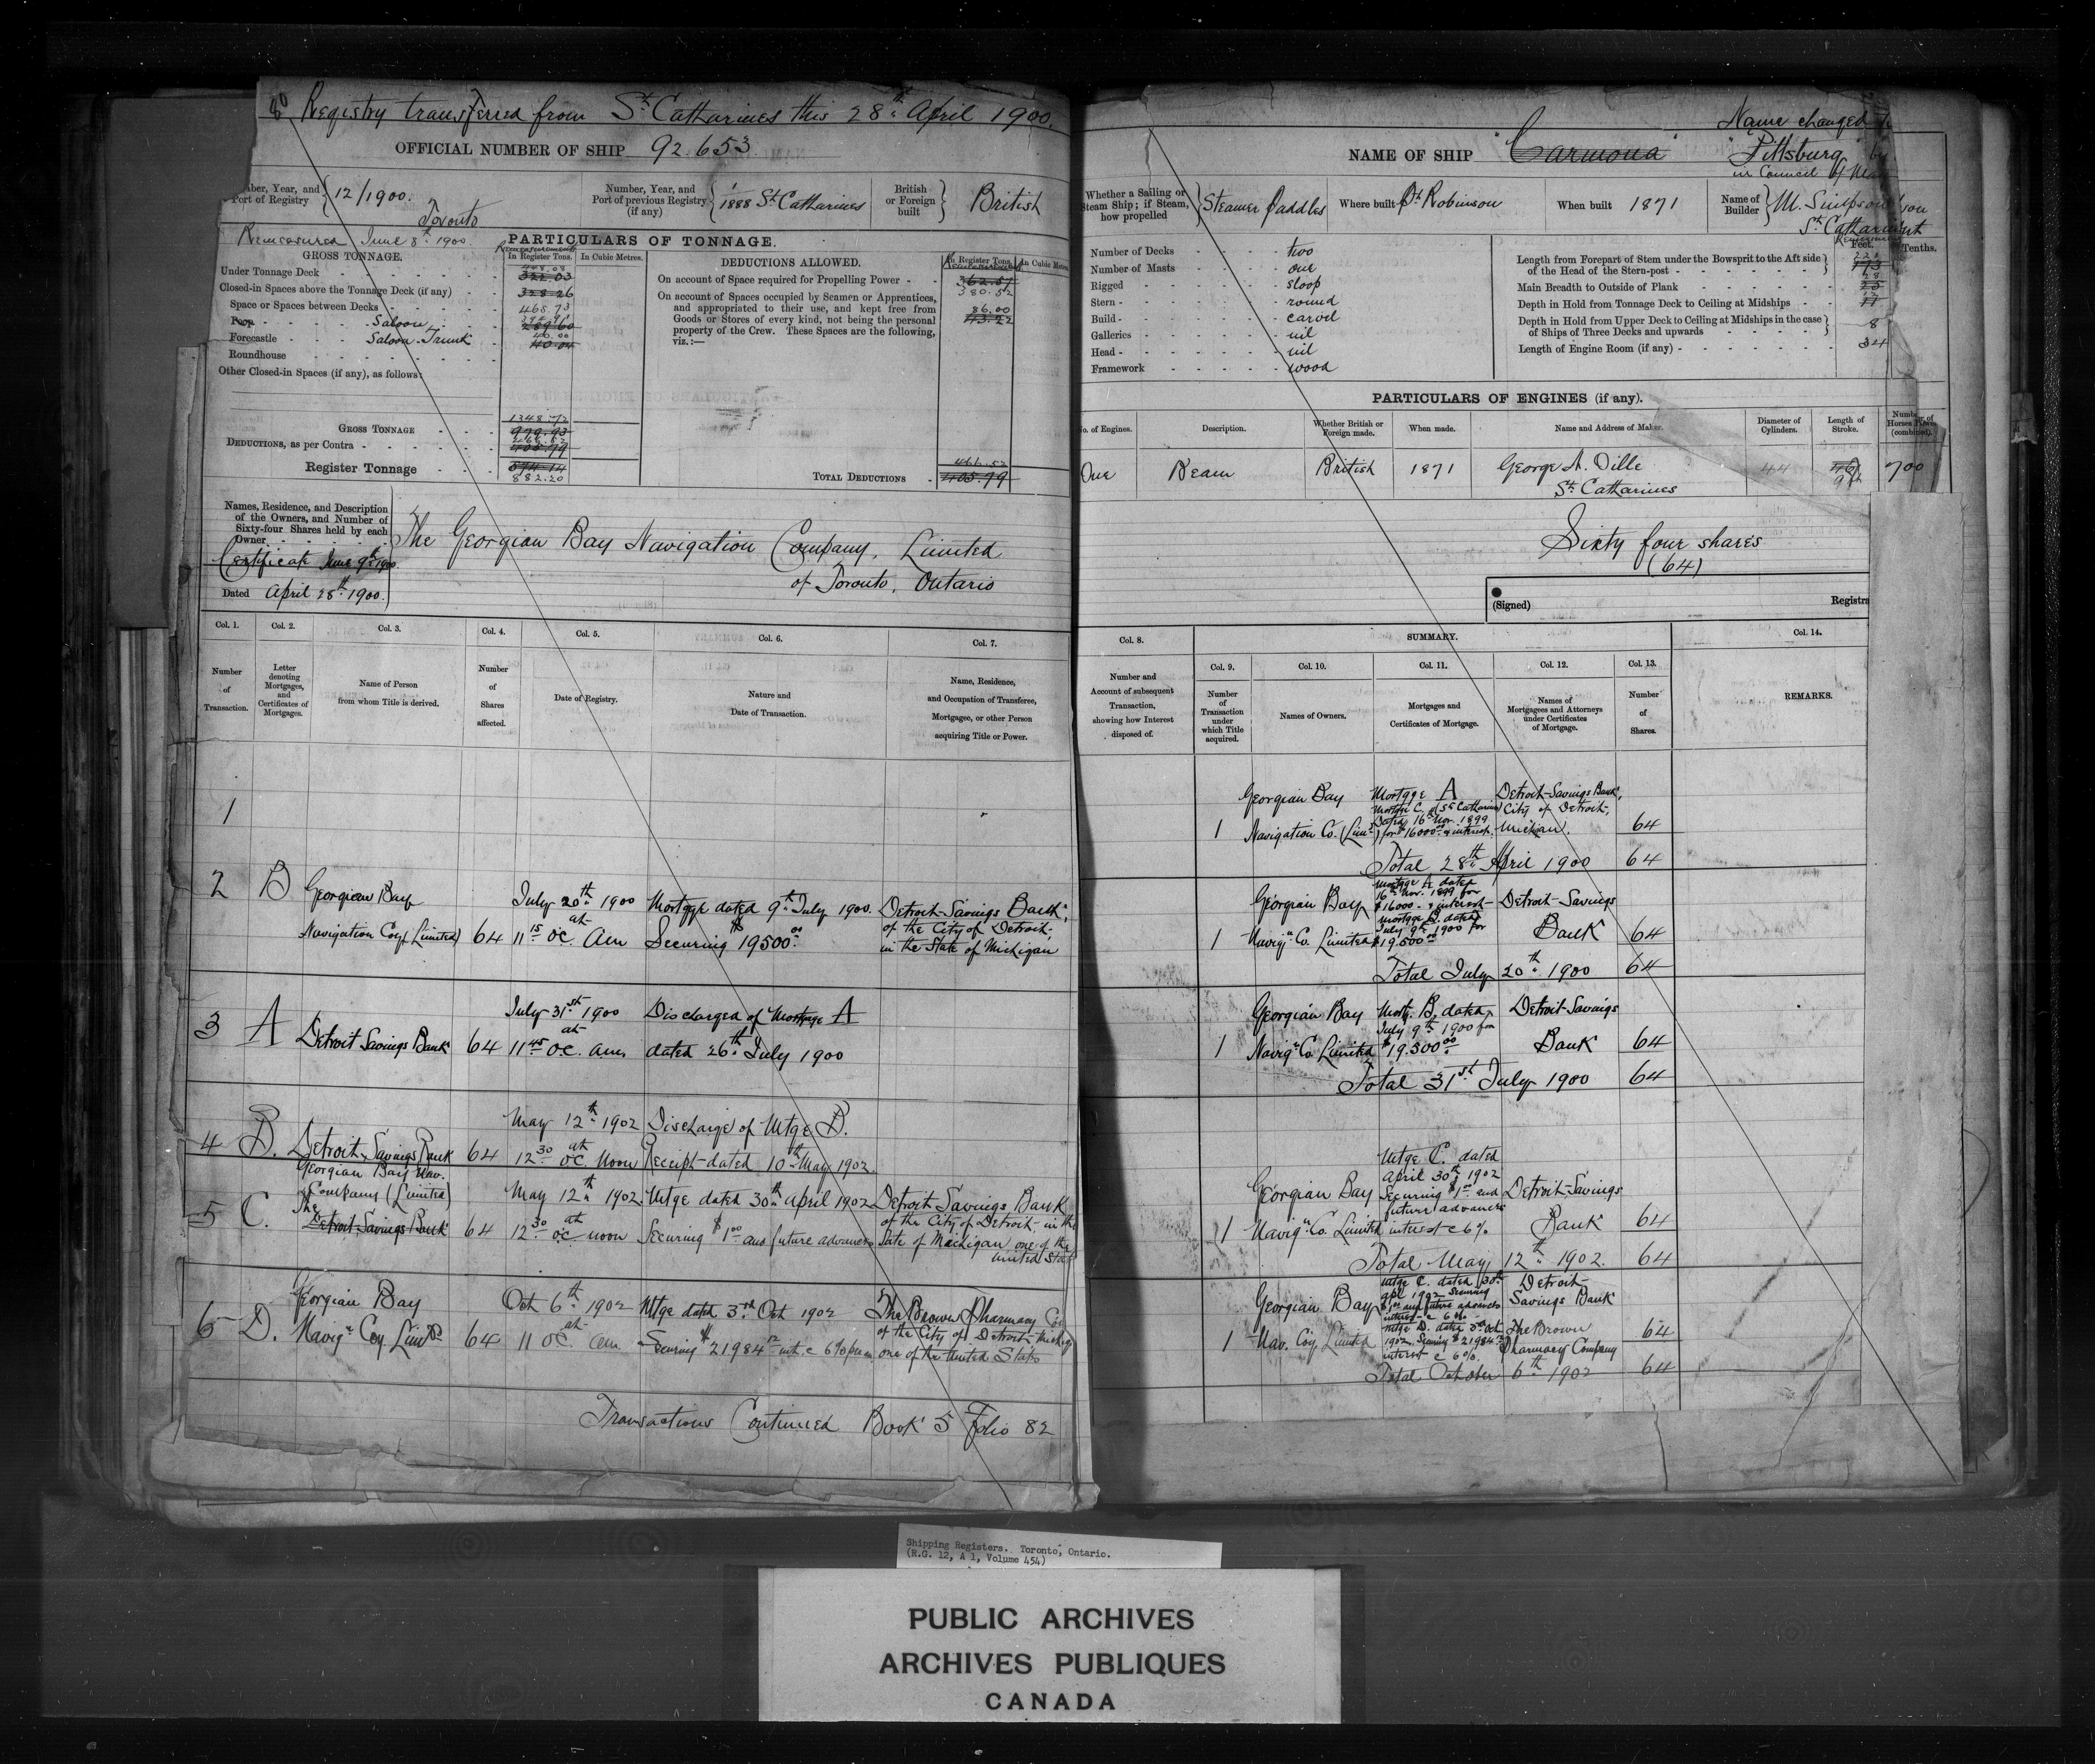 80 Registry transferred from St. Catharines this 28th April 1900.
OFFICIAL NUMBER OF SHIP 92.653.
Number, Year, and Port of Registry 12/1900. Toronto
Number, Year, and Port of previous Registry (if any) 1/1888 St Catharines
British or Foreign built British
Remeasured June 8th 1900.
PARTICULARS OF TONNAGE.
GROSS TONNAGE.
Remeasurement
In Register Tons.
In Cubic Metres.
Under Tonnage Deck
Closed-in Spaces above the Tonnage Deck (if any) 328.26
Space or Spaces between Decks 465.73
Poop Saloon 289.60
Forecastle Saloon Trunk 40.00 40.04
Roundhouse
Other Closed-in Spaces (if any), as follows:
1348.72
GROSS TONNAGE 979.93
466.52
DEDUCTIONS, as per Contra 405.79
Register Tonnage 574.14
882.20
DEDUCTIONS ALLOWED.
In Register Tons.
In Cubic Metres
On account of Space required for Propelling Power 362.57
380.52
On account of Spaces occupied by Seamen or Apprentices, and appropriated to their use, and kept free from Goods or Stores of every kind, not being the personal property of the Crew. These Spaces are the following, viz.:—
86.00
43.22
466.52
TOTAL DEDUCTIONS 405.79
Names, Residence, and Description of the Owners, and Number of Sixty-four Shares held by each Owner
Certificate June 9th 1900
Dated April 28th 1900.
The Georgian Bay Navigation Company, Limited
of Toronto, Ontario
Col. 1. Number of Transaction.
Col. 2. Letter denoting Mortgages, and Certificates of Mortgages.
Col. 3. Name of Person from whom Title is derived.
Col. 4. Number of Shares affected.
Col. 5. Date of Registry.
Col. 6. Nature and Date of Transaction.
Col. 7. Name, Residence, and Occupation of Transferee, Mortgagee, or other Person acquiring Title or Power.
1
2 B Georgian Bay Navigation Coy (Limited) 64 July 20th 1900 at 11 15 oc. am Mortgge dated 9th July 1900. Securing $19500.00 Detroit Savings Bank, of the City of Detroit, in the State of Michigan
3 A Detroit Savings Bank 64 July 31st 1900 at 11 45 oc. am. Discharged of Mortgage A dated 26th July 1900
4 B. Detroit Savings Bank 64 May 12th 1902 at 12 30 oc. noon Discharge of Mtge B. Receipt dated 10th May 1902.
5 C. Georgian Bay Nav. Company (Limited) The Detroit Savings Bank 64 May 12th 1902 at 12 30 oc. noon Mtge dated 30th April 1902 Securing $1.00 and future advances Detroit Savings Bank of the City of Detroit in the State of Michigan one of the United Stat
6 D. Georgian Bay Navign Coy. Limtd 64 Oct 6th 1902 at 11 oc. am Mtge dated 3rd Oct 1902 Securing $21984 12 int. @ 6% per an The Brown Pharmacy Co of the City of Detroit one of the United States
Transactions Continued Book 5 Folio 82
NAME OF SHIP "Carmona"
Name changed to
"Pittsburg" by
in Council of May
Whether a Sailing or Steam Ship; if Steam, how propelled Steamer Paddles
Where built Pt Robinson
When built 1871
Name of Builder M. Simpson
St. Catharines
Number of Decks two
Number of Masts one
Rigged sloop
Stern round
Build carvel
Galleries nil
Head nil
Framework wood
Feet. Tenths.
Length from Forepart of Stem under the Bowsprit to the Aft side of the Head of the Stern-post 173
Main Breadth to Outside of Plank 28
Depth in Hold from Tonnage Deck to Ceiling at Midships 11
Depth in Hold from Upper Deck to Ceiling at Midships in the case of Ships of Three Decks and upwards 8
Length of Engine Room (if any) 34
PARTICULARS OF ENGINES (if any).
No. of Engines.
Description.
Whether British or Foreign made.
When made.
Name and Address of Maker.
Diameter of Cylinders.
Length of Stroke.
Number of Horses Power (combined).
One Beam British 1871 George N. Oille St. Catharines 44 700
Sixty four shares
(64)
(Signed) Registra
SUMMARY.
Col. 8. Number and Account of subsequent Transaction, showing how Interest disposed of.
Col. 9. Number of Transaction under which Title acquired.
Col. 10. Names of Owners.
Col. 11. Mortgages and Certificates of Mortgage.
Col. 12. Names of Mortgagees and Attorneys under Certificates of Mortgage.
Col. 13. Number of Shares.
Col. 14. REMARKS.
1 Georgian Bay Navigation Co. (Limd) Mortgge A Mortgge C. (St Catharines) Dated 16th Nov. 1899 for $16000.00 & interest. Detroit Savings Bank, City of Detroit, Michigan. 64
Total 28th April 1900 64
1 Georgian Bay Navign Co. Limited Mortgge A dated 16th Nov. 1899 for $16000 & interest Mortgge B. dated July 9th 1900 for $19.500.00 Detroit Savings Bank 64
Total July 20th 1900 64
1 Georgian Bay Navign Co. Limited Mortg. B. dated July 9th 1900 for $19.500.00 Detroit Savings Bank 64
Total 31st July 1900 64
1 Georgian Bay Navign Co. Limited Mtge C. dated April 30th 1902 Securing $1.00 and future advances interest @ 6% Detroit Savings Bank 64
Total May 12th 1902. 64
1 Georgian Bay Nav. Coy. Limited Mtge C. dated 30th Apl 1902 Securing $1.00 and future advances interest @ 6%. Mtge D. dated 3rd Oct 1902 Securing $21984.12 interest @ 6%. Detroit Savings Bank The Brown Pharmacy Company 64
Total October 6th 1902 64
Shipping Registers. Toronto, Ontario.
(R.G. 12, A 1, Volume 454)
PUBLIC ARCHIVES
ARCHIVES PUBLIQUES
CANADA